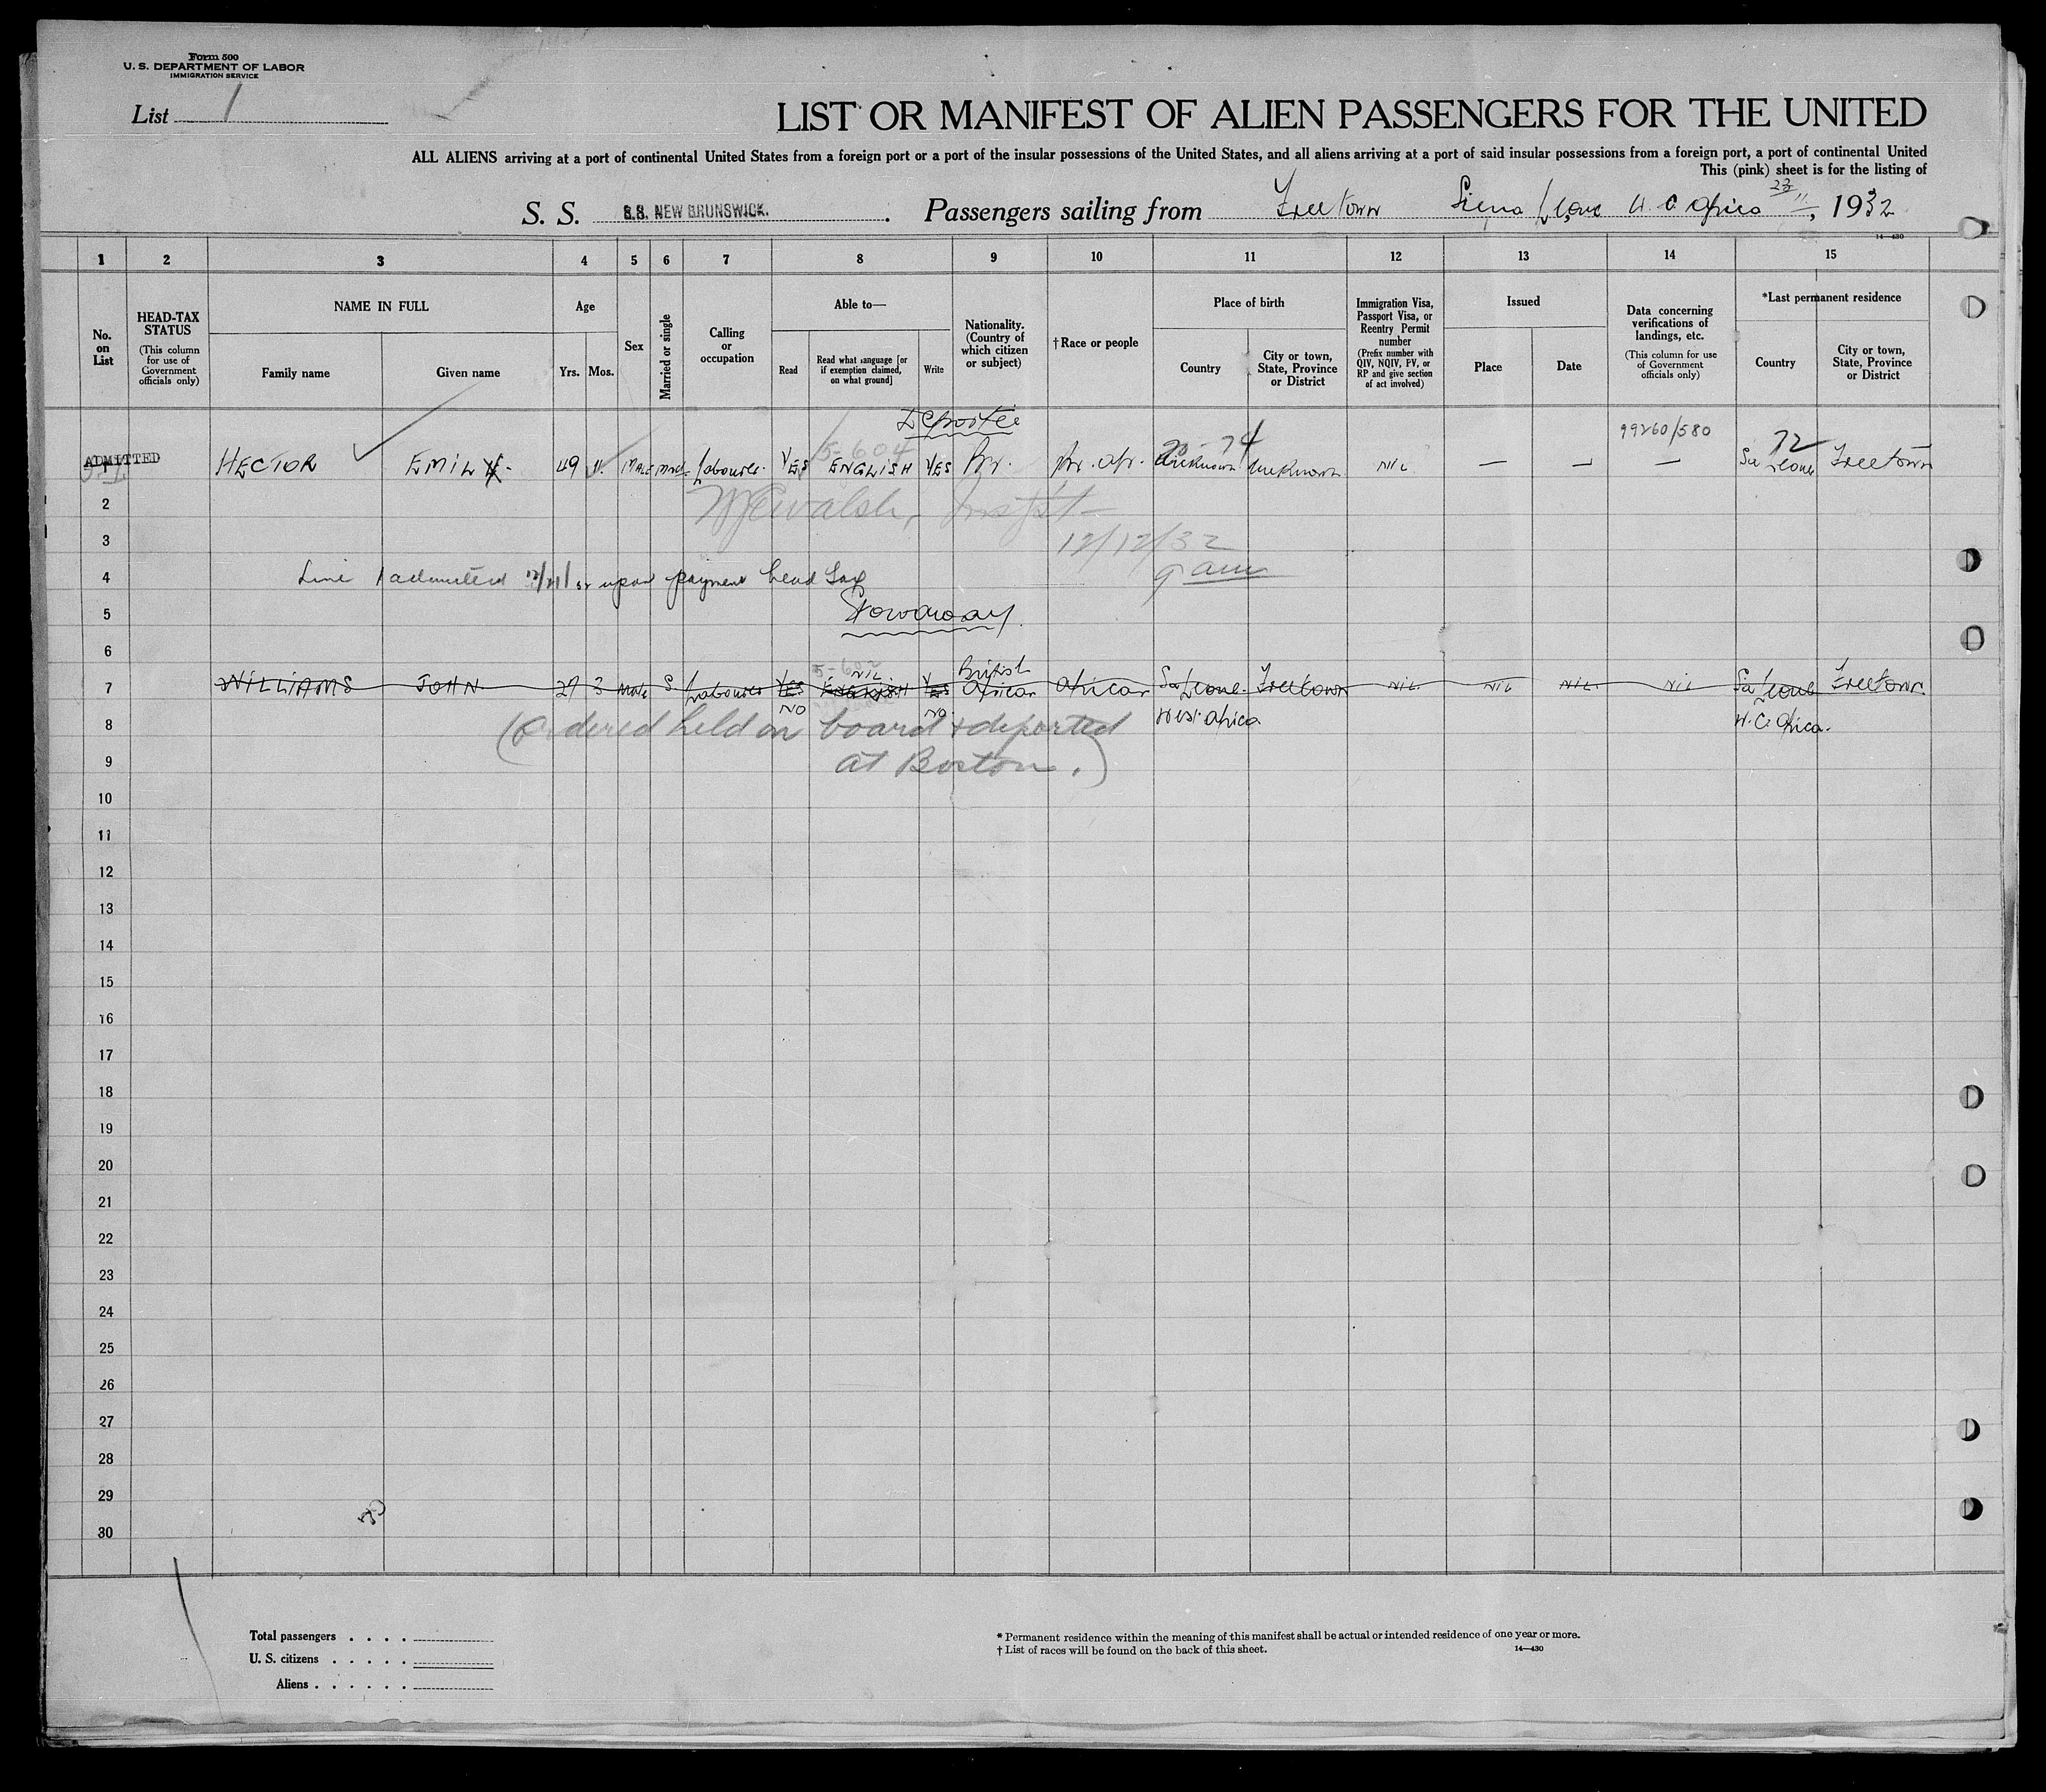 Form 500
U. S. DEPARTMENT OF LABOR
IMMIGRATION SERVICE
List 1
LIST OR MANIFEST OF ALIEN PASSENGERS FOR THE UNITED
ALL ALIENS arriving at a port of continental United States from a foreign port or a port of the insular possessions of the United States, and all aliens arriving at a port of said insular possessions from a foreign port, a port of continental United
This (pink) sheet is for the listing of
S. S. S.S. NEW BRUNSWICK. Passengers sailing from Freetown Sierra Leone W. C. Africa 23/11, 1932
14—430
1 2 3 4 5 6 7 8 9 10 11 12 13 14 15
No. on List
HEAD-TAX STATUS (This column for use of Government officials only)
NAME IN FULL
Family name Given name
Age
Yrs. Mos.
Sex
Married or single
Calling or occupation
Able to—
Read Read what language [or if exemption claimed, on what ground] Write
Nationality. (Country of which citizen or subject)
†Race or people
Place of birth
Country City or town, State, Province or District
Immigration Visa, Passport Visa, or Reentry Permit number (Prefix number with QIV, NQIV, PV, or RP and give section of act involved)
Issued
Place Date
Data concerning verifications of landings, etc. (This column for use of Government officials only)
*Last permanent residence
Country City or town, State, Province or District
Deportee
5-604 74 99260/580 72
ADMITTED
1 HECTOR EMIL 49 11 MALE Labourer. YES ENGLISH YES Br. Br. Afr. Unknown Unknown NIL — — — Sa Leone Freetown
2 Walsh, Inspt—
3 12/12/32
9 am
4 Line 1 admitted 12/21/32 upon payment head tax
5 Stowaway.
6
5-602 NIL British
7 WILLIAMS JOHN 27 3 Male S. Labourer YES ENGLISH YES African African Sa Leone. Freetown NIL. NIL NIL. NIL Sa Leone Freetown.
NO NO. West Africa W. C. Africa.
8 (Ordered held on board & deported
9 at Boston.)
10
11
12
13
14
15
16
17
18
19
20
21
22
23
24
25
26
27
28
29
30
Total passengers . . . .
U. S. citizens . . . . .
Aliens . . . . . .
* Permanent residence within the meaning of this manifest shall be actual or intended residence of one year or more.
† List of races will be found on the back of this sheet. 14—430